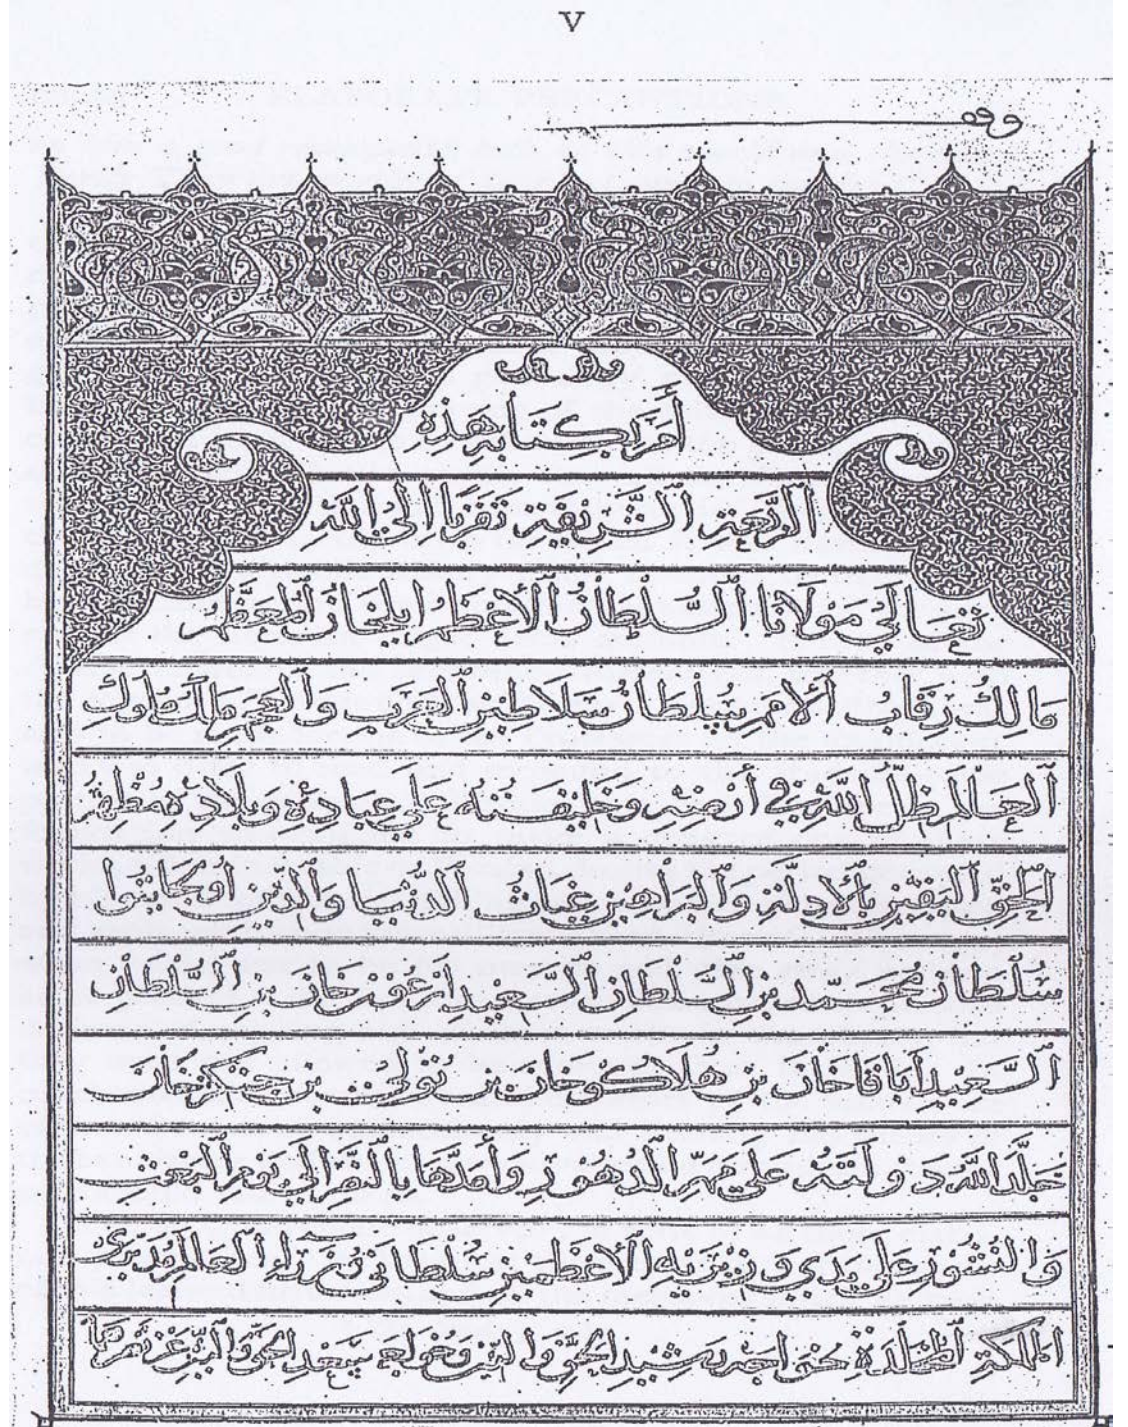 V
وقف
أَمَرَ بِكِتَابَةِ هَذِهِ
ٱلرَّبْعَةِ ٱلشَّرِيفَةِ تَقَرُّبًا إِلَى ٱللَّهِ
تَعَالَى مَوْلَانَا ٱلسُّلْطَانُ ٱلْأَعْظَمُ ايلخان ٱلْمُعَظَّمُ
مَالِكُ رِقَابِ ٱلْأُمَمِ سُلْطَانُ سَلَاطِينِ ٱلْعَرَبِ وَٱلْعَجَمِ مَلِكُ مُلُوكِ
ٱلْعَالَمِ ظِلُّ ٱللَّهِ فِي أَرْضِهِ وَخَلِيفَتُهُ عَلَى عِبَادِهِ وَبِلَادِهِ مُظْهِرُ
ٱلْحَقِّ ٱلْيَقِينِ بِٱلْأَدِلَّةِ وَٱلْبَرَاهِينِ غِيَاثُ ٱلدُّنْيَا وَٱلدِّينِ اولجايتوا
سُلْطَان مُحَمَّد بْنِ ٱلسُّلْطَانِ ٱلسَّعِيدِ أَرْغُون خَان بْنِ ٱلسُّلْطَانِ
ٱلسَّعِيدِ اباقا خَان بْنِ هُلَاكُو خَان بْنِ تُولِي بْنِ جنكز خان
خَلَّدَ ٱللَّهُ دَوْلَتَهُ عَلَى مَرِّ ٱلدُّهُورِ وَأَمَدَّهَا بِالنَّصْرِ إِلَى يَوْمِ ٱلْبَعْثِ
وَالنُّشُورِ عَلَى يَدَيْ وَزِيرَيْهِ ٱلْأَعْظَمَيْنِ سُلْطَانَيْ وُزَرَاءِ ٱلْعَالَمِ مُدَبِّرَيْ
ٱلْمَمْلَكَةِ خواجه رَشِيد ٱلْحَقِّ وَالدِّينِ وخواجه سَعْد ٱلْحَقِّ وَالدِّينِ عَزَّ